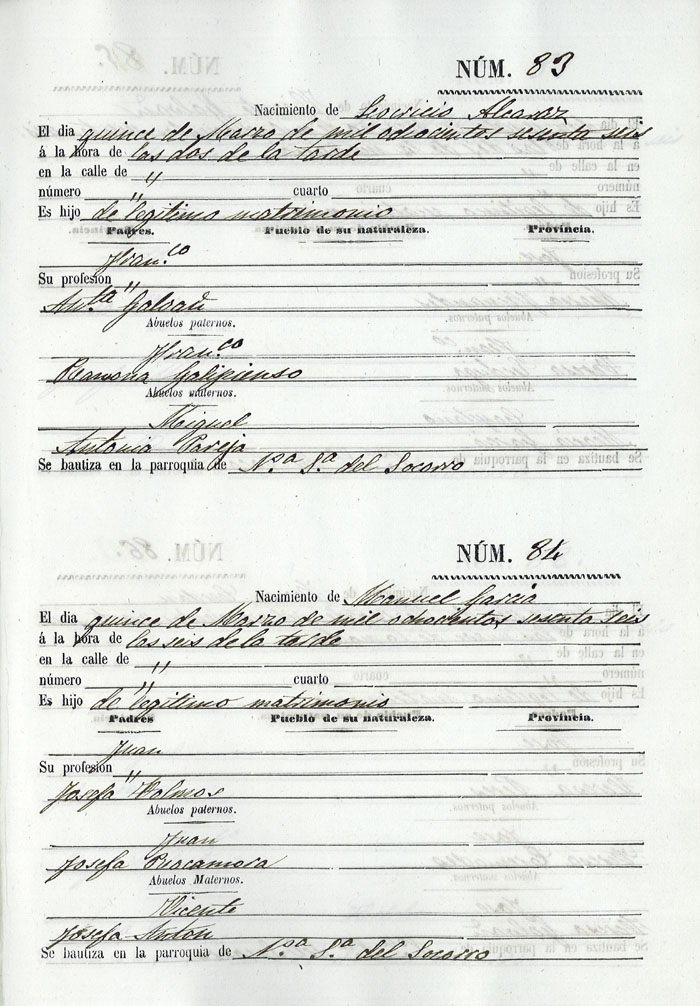 NÚM. 83
Nacimiento de Leovricio Alcaraz
El dia quince de Marzo de mil odocintos sesenta seis
á la hora de las dos de la tarde
en la calle de "
número " cuarto
Es hijo de legitimo matrimonio
Padres. Pueblo de su naturaleza. Provincia.
Fran.co
Su profesión "
An.ta Galvañ
Abuelos paternos.
Fran.co
Ramona Galipienso
Abuelos maternos.
Miguel
Antonia Pareja
Se bautiza en la parroquia de N.a S.a del Socorro
NÚM. 84
Nacimiento de Manuel Garcia
El dia quince de Marzo de mil ochocientos sesenta seis
á la hora de las seis de la tarde
en la calle de "
número " cuarto
Es hijo de legitimo matrimonio
Padres Pueblo de su naturaleza. Provincia.
Juan
Su profesión "
Josefa Palmos
Abuelos paternos.
Juan
Josefa Rocamora
Abuelos Maternos.
Vicente
Josefa Antón
Se bautiza en la parroquia de N.a S.a del Socorro